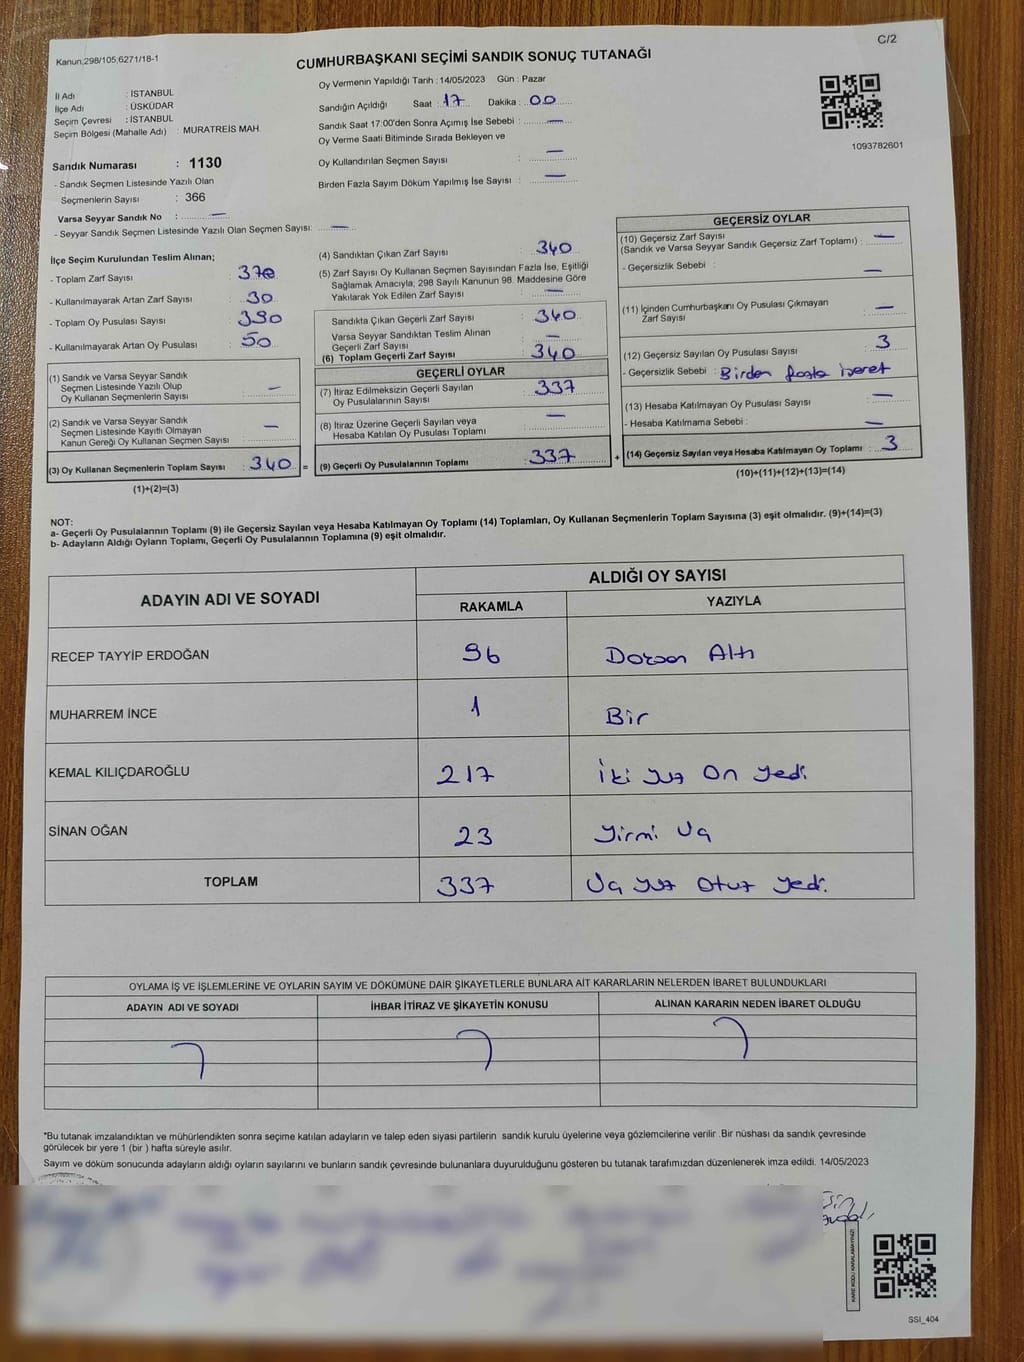 C/2
Kanun,298/105,6271/18-1
CUMHURBAŞKANI SEÇİMİ SANDIK SONUÇ TUTANAĞI
İl Adı : İSTANBUL
İlçe Adı : ÜSKÜDAR
Seçim Çevresi : İSTANBUL
Seçim Bölgesi (Mahalle Adı) : MURATREİS MAH.
Sandık Numarası : 1130
- Sandık Seçmen Listesinde Yazılı Olan
Seçmenlerin Sayısı : 366
Varsa Seyyar Sandık No : —
- Seyyar Sandık Seçmen Listesinde Yazılı Olan Seçmen Sayısı: —
Oy Vermenin Yapıldığı Tarih : 14/05/2023 Gün : Pazar
Sandığın Açıldığı Saat : 17 Dakika : 00
Sandık Saat 17:00'den Sonra Açımış İse Sebebi : —
Oy Verme Saati Bitiminde Sırada Bekleyen ve
Oy Kullandırılan Seçmen Sayısı : —
Birden Fazla Sayım Döküm Yapılmış İse Sayısı : —
1093782601
İlçe Seçim Kurulundan Teslim Alınan;
- Toplam Zarf Sayısı : 370
- Kullanılmayarak Artan Zarf Sayısı : 30
- Toplam Oy Pusulası Sayısı : 390
- Kullanılmayarak Artan Oy Pusulası : 50
(1) Sandık ve Varsa Seyyar Sandık
Seçmen Listesinde Yazılı Olup
Oy Kullanan Seçmenlerin Sayısı : —
(2) Sandık ve Varsa Seyyar Sandık
Seçmen Listesinde Kayıtlı Olmayan
Kanun Gereği Oy Kullanan Seçmen Sayısı : —
(3) Oy Kullanan Seçmenlerin Toplam Sayısı : 340 =
(1)+(2)=(3)
(4) Sandıktan Çıkan Zarf Sayısı : 340
(5) Zarf Sayısı Oy Kullanan Seçmen Sayısından Fazla İse, Eşitliği
Sağlamak Amacıyla, 298 Sayılı Kanunun 98. Maddesine Göre
Yakılarak Yok Edilen Zarf Sayısı : —
Sandıkta Çıkan Geçerli Zarf Sayısı : 340
Varsa Seyyar Sandıktan Teslim Alınan
Geçerli Zarf Sayısı : —
(6) Toplam Geçerli Zarf Sayısı : 340
GEÇERLİ OYLAR
(7) İtiraz Edilmeksizin Geçerli Sayılan
Oy Pusulalarının Sayısı : 337
(8) İtiraz Üzerine Geçerli Sayılan veya
Hesaba Katılan Oy Pusulası Toplamı : —
(9) Geçerli Oy Pusulalarının Toplamı : 337 +
GEÇERSİZ OYLAR
(10) Geçersiz Zarf Sayısı
(Sandık ve Varsa Seyyar Sandık Geçersiz Zarf Toplamı) : —
- Geçersizlik Sebebi : —
(11) İçinden Cumhurbaşkanı Oy Pusulası Çıkmayan
Zarf Sayısı : —
(12) Geçersiz Sayılan Oy Pusulası Sayısı : 3
- Geçersizlik Sebebi : Birden fazla işaret
(13) Hesaba Katılmayan Oy Pusulası Sayısı : —
- Hesaba Katılmama Sebebi : —
(14) Geçersiz Sayılan veya Hesaba Katılmayan Oy Toplamı : 3
(10)+(11)+(12)+(13)=(14)
NOT:
a- Geçerli Oy Pusulalarının Toplamı (9) ile Geçersiz Sayılan veya Hesaba Katılmayan Oy Toplamı (14) Toplamları, Oy Kullanan Seçmenlerin Toplam Sayısına (3) eşit olmalıdır. (9)+(14)=(3)
b- Adayların Aldığı Oyların Toplamı, Geçerli Oy Pusulalarının Toplamına (9) eşit olmalıdır.
ADAYIN ADI VE SOYADI ALDIĞI OY SAYISI
RAKAMLA YAZIYLA
RECEP TAYYİP ERDOĞAN 96 Doksan Altı
MUHARREM İNCE 1 Bir
KEMAL KILIÇDAROĞLU 217 İki yüz On yedi
SİNAN OĞAN 23 Yirmi Üç
TOPLAM 337 Üç yüz Otuz yedi.
OYLAMA İŞ VE İŞLEMLERİNE VE OYLARIN SAYIM VE DÖKÜMÜNE DAİR ŞİKAYETLERLE BUNLARA AİT KARARLARIN NELERDEN İBARET BULUNDUKLARI
ADAYIN ADI VE SOYADI İHBAR İTİRAZ VE ŞİKAYETİN KONUSU ALINAN KARARIN NEDEN İBARET OLDUĞU
*Bu tutanak imzalandıktan ve mühürlendikten sonra seçime katılan adayların ve talep eden siyasi partilerin sandık kurulu üyelerine veya gözlemcilerine verilir .Bir nüshası da sandık çevresinde
görülecek bir yere 1 (bir ) hafta süreyle asılır.
Sayım ve döküm sonucunda adayların aldığı oyların sayılarını ve bunların sandık çevresinde bulunanlara duyurulduğunu gösteren bu tutanak tarafımızdan düzenlenerek imza edildi. 14/05/2023
KARE KODU KARALAMAYINIZ!
SSI_404